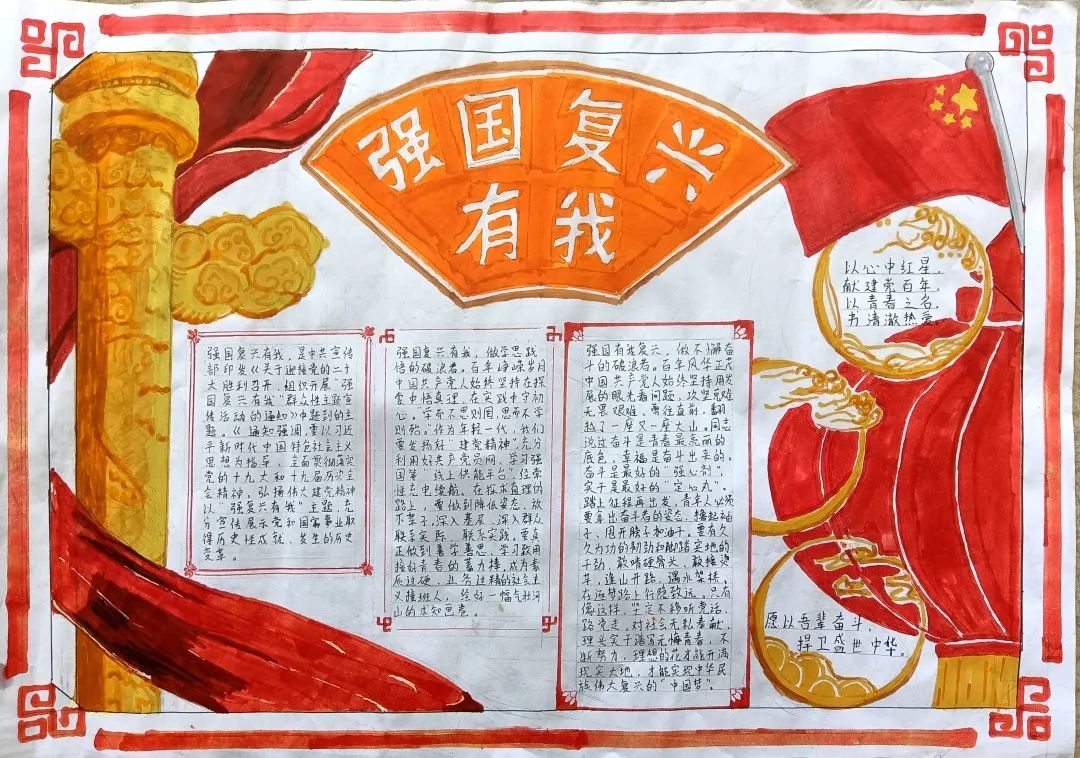 强国复兴
有我
强国复兴有我，是中共宣传
部印发《关于迎接党的二十
大胜利召开，组织开展“强
国复兴有我”群众性主题宣
传活动的通知》中题到的主
题。《通知强调，要以习近
平新时代中国特色社会主义
思想为指导，全面贯彻落实
党的十九大和十九届历次全
会精神，弘扬伟大建党精神
以“强国复兴有我”主题，充
分宣传展示党和国家事业取
得历史性成就、发生的历史
变革。
强国复兴有我，做学思践
悟的破浪者。百年峥嵘岁月
中国共产党人始终坚持在探
索中悟真理，在实践中守初
心。“学而不思则罔，思而不学
则殆。”作为年轻一代，我们
要发扬好“建党精神”充分
利用好共产党员网、学习强
国等“线上供能平台”，经常
性充电续航，在探求真理的
路上，要做到降低姿态、放
下架子，深入基层、深入群众
联系实际、联系实践，要真
正做到善学善思、学习致用
接好青春的蓄力棒，成为素
质过硬、业务过精的社会主
义接班人，绘好一幅气壮河
山的求知画卷。
强国有我复兴，做不懈奋
斗的破浪者。百年风华正茂
中国共产党人始终坚持用发
展的眼光看问题，攻坚克难
无畏艰难、勇往直前，翻
越了一座又一座大山。同志
说过奋斗是青春最亮丽的
底色，幸福是奋斗出来的。
奋斗是最好的“强心剂”，
实干是最好的“定心丸”。
踏上征程再出发，青年人必须
要拿出奋斗者的姿态，撸起袖
子、甩开膀子加油干。要有久
久为功的韧劲和脚踏实地的
干劲，敢啃硬骨头、敢接烫
芋，逢山开路、遇水架桥，
在逐梦路上行稳致远。只有
像这样，坚定不移听党话、
跟党走，对社会无私奉献，
埋头实干谱写无悔青春，不
断努力，理想的花才能开满
现实大地，才能实现中华民
族伟大复兴的“中国梦”。
以心中红星，
献建党百年，
以青春之名，
书清澈热爱。
愿以吾辈奋斗，
捍卫盛世中华。